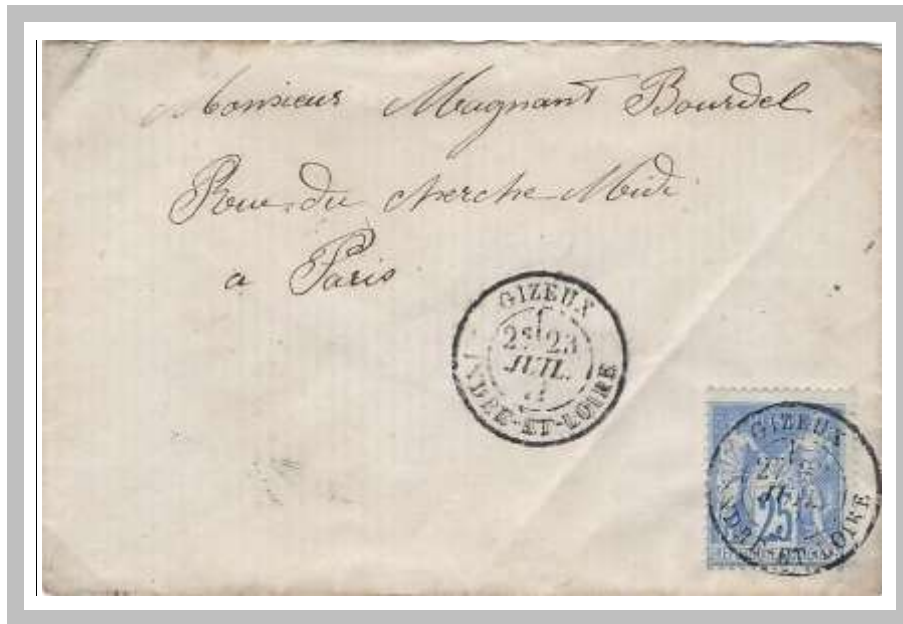 Monsieur Magnant Bourdel
Rue du Cherche Midi
a Paris
GIZEUX
1
2E 23
JUIL.
INDRE-ET-LOIRE
GIZEUX
1
2E
JUIL.
25
INDRE-ET-LOIRE